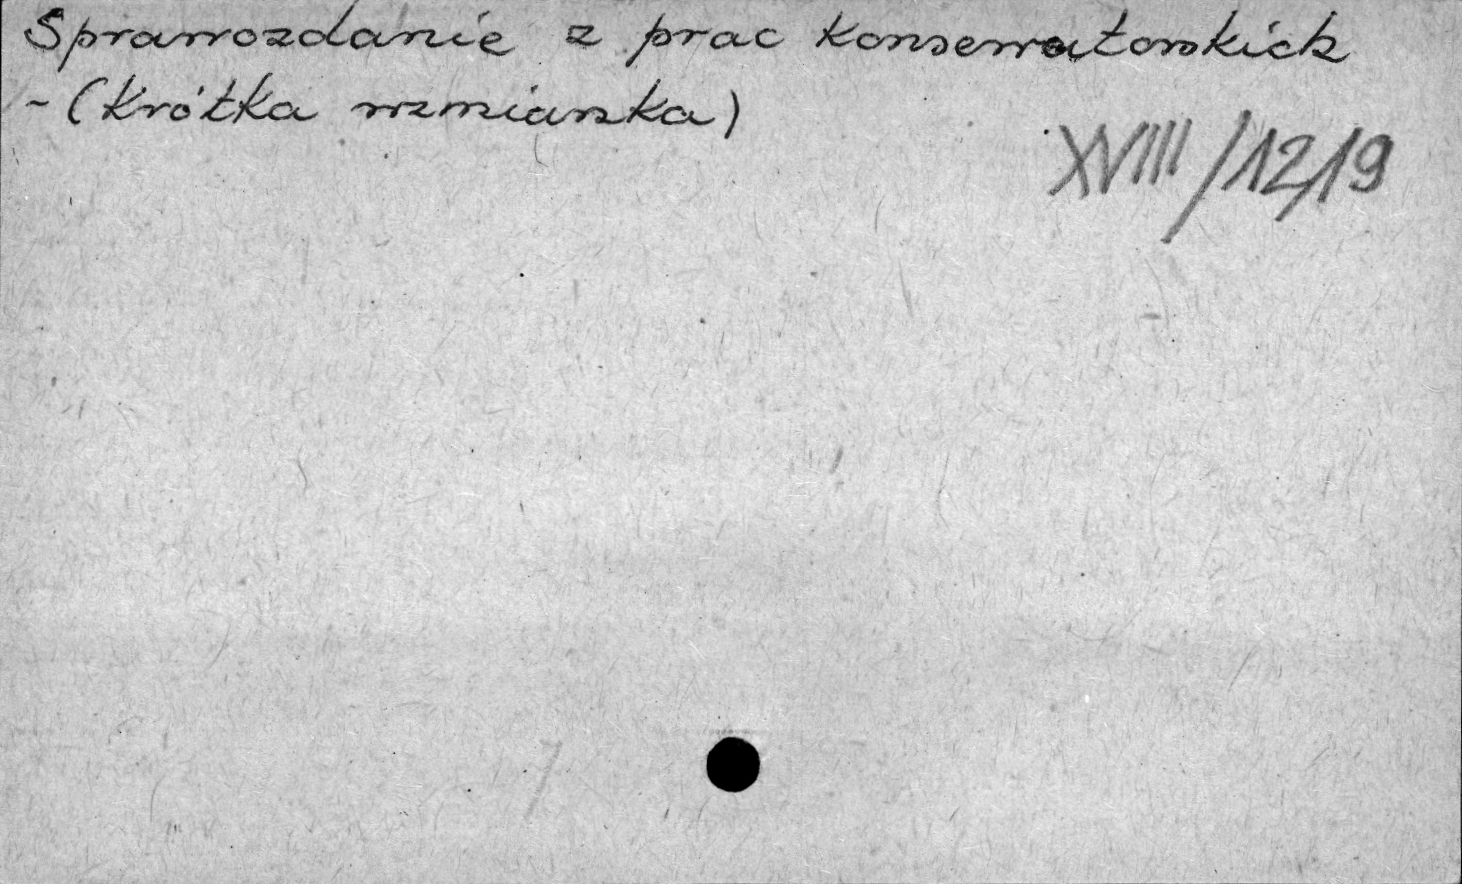 Sprawozdanie z prac konserwatorskich
- (Krótka wzmianka)
XVIII/12/19